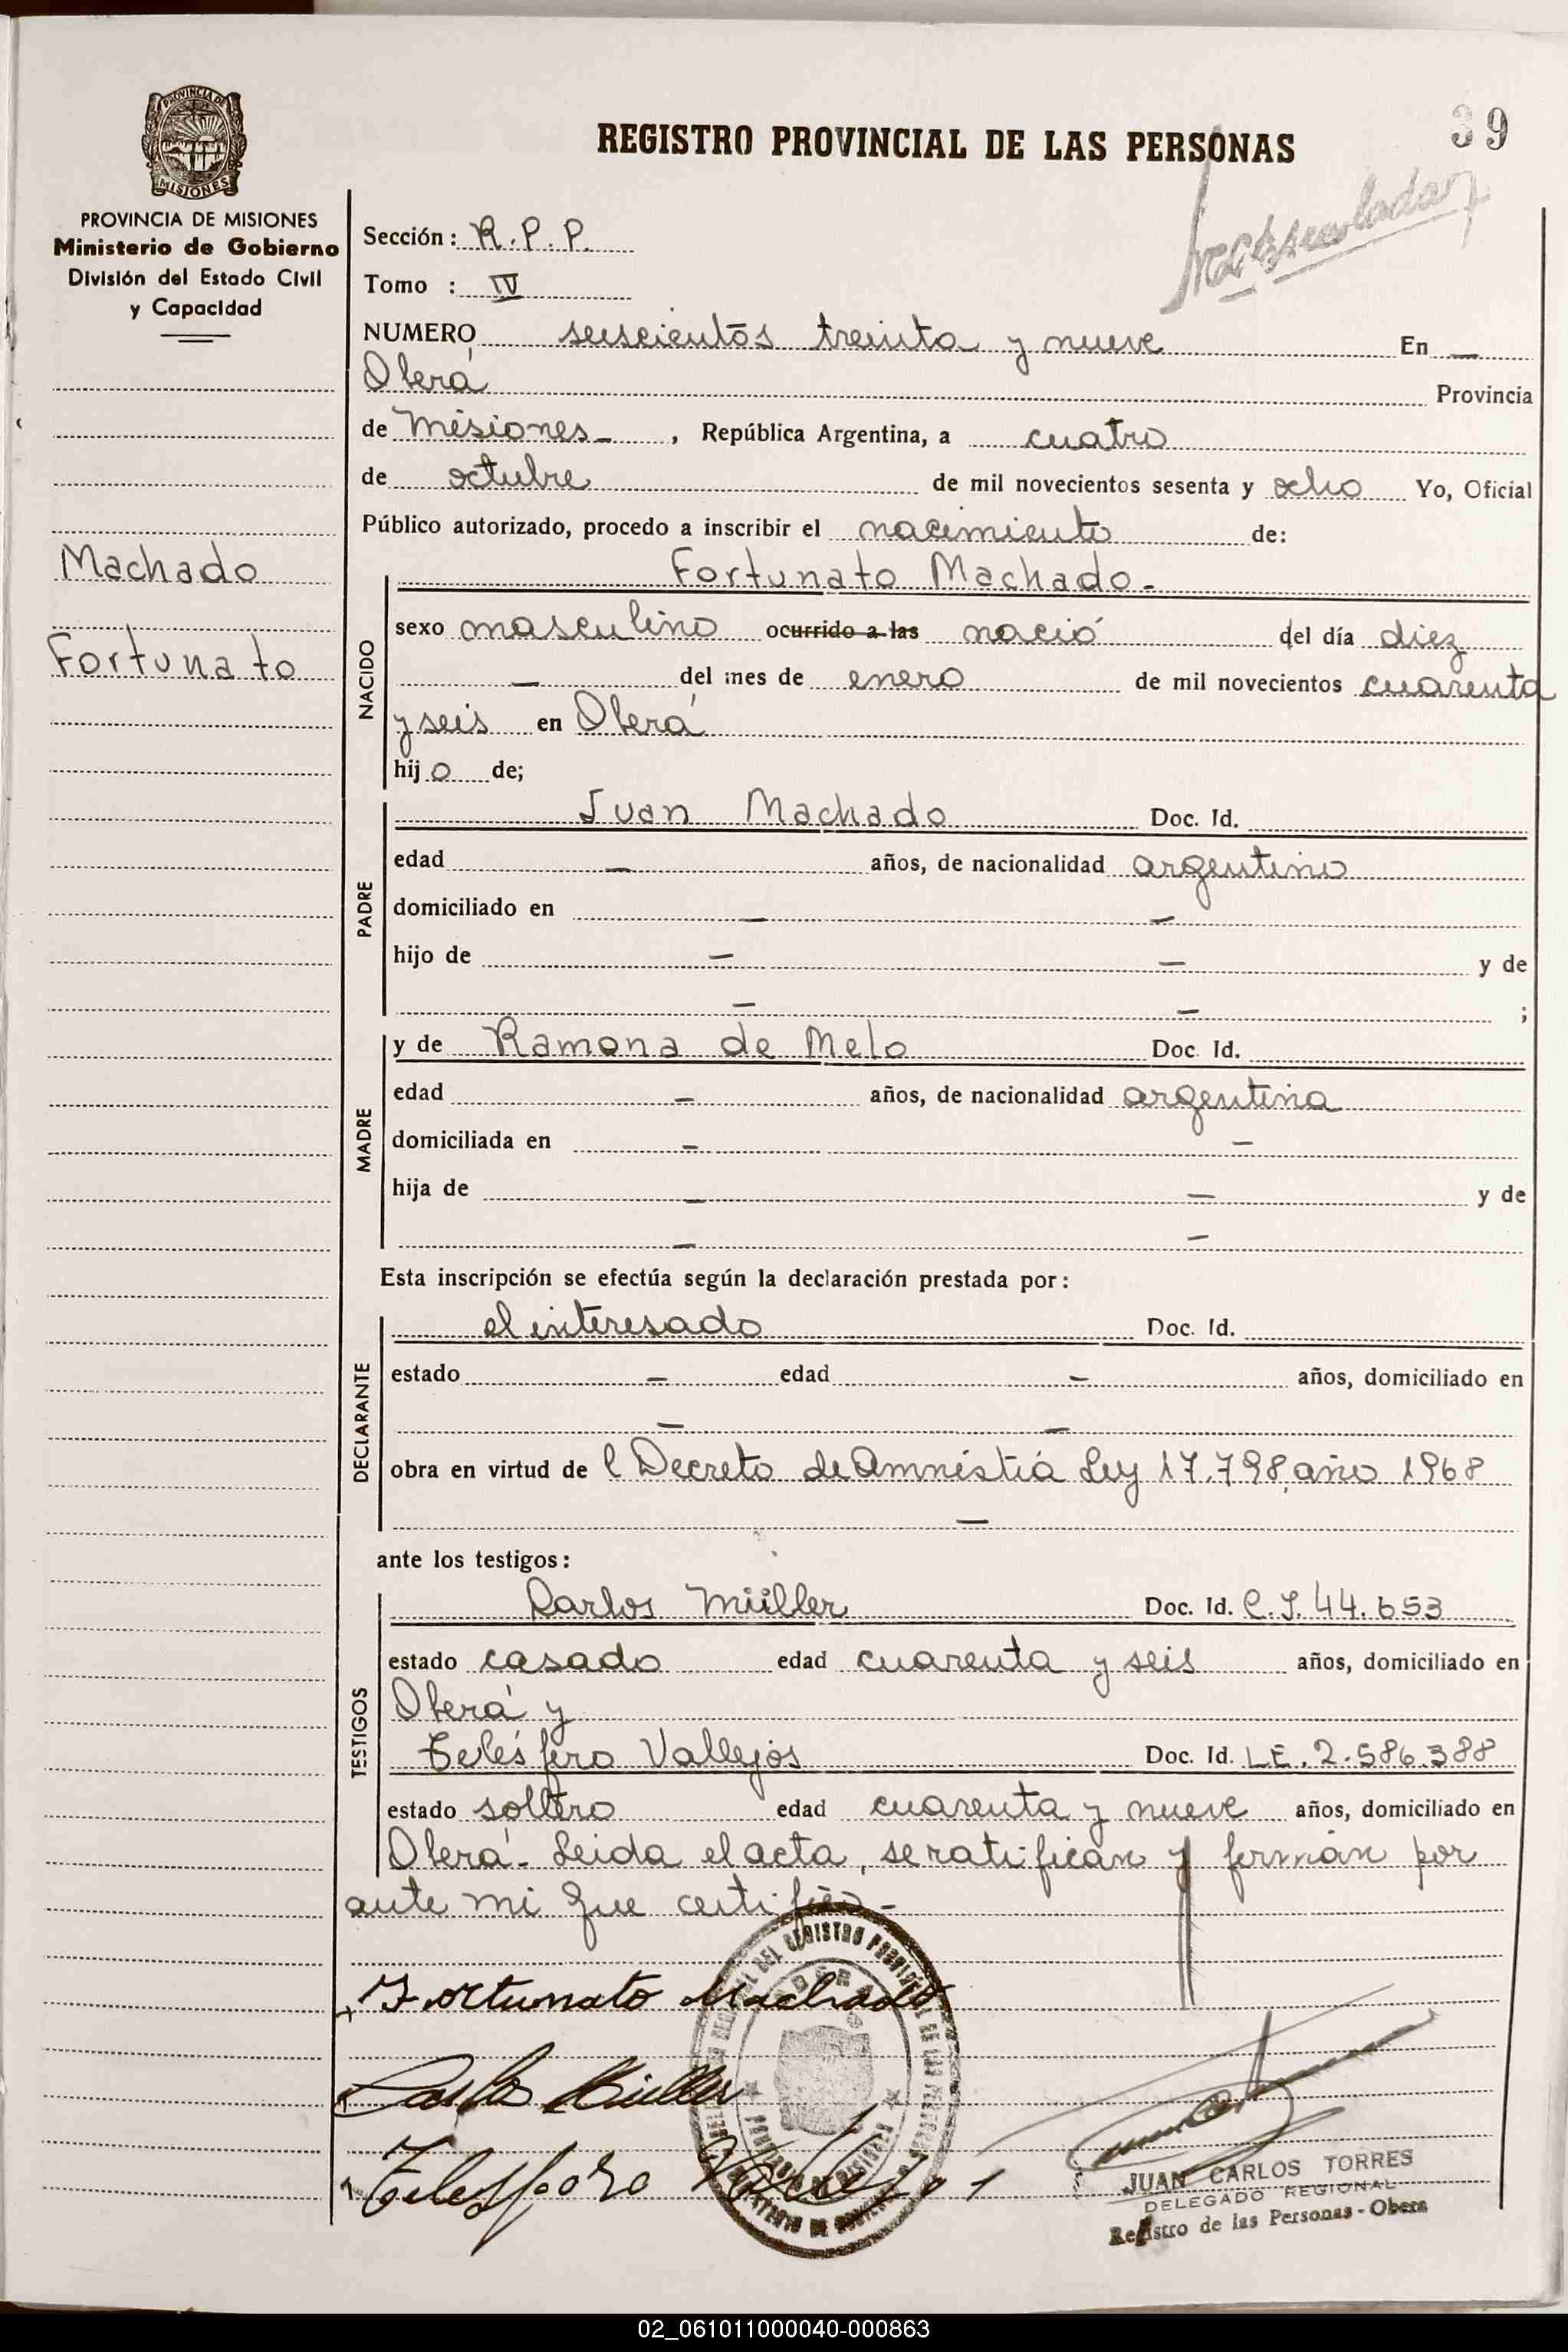 PROVINCIA DE
MISIONES
PROVINCIA DE MISIONES
Ministerio de Gobierno
División del Estado Civil
y Capacidad
Machado
Fortunato
REGISTRO PROVINCIAL DE LAS PERSONAS
39
Sección: R.P.P.
Tomo : IV
NUMERO seiscientos treinta y nueve En —
Oberá Provincia
de Misiones - , República Argentina, a cuatro
de octubre de mil novecientos sesenta y ocho Yo, Oficial
Público autorizado, procedo a inscribir el nacimiento de:
Fortunato Machado -
NACIDO
sexo masculino ocurrido a las nació del día diez
— del mes de enero de mil novecientos cuarenta
y seis en Oberá
hijo de;
PADRE
Juan Machado Doc. Id.
edad — años, de nacionalidad argentino
domiciliado en — —
hijo de — — y de
— — ;
MADRE
y de Ramona de Melo Doc. Id.
edad — años, de nacionalidad argentina
domiciliada en — —
hija de — — y de
— —
Esta inscripción se efectúa según la declaración prestada por:
DECLARANTE
el interesado Doc. Id.
estado — edad — años, domiciliado en
— —
obra en virtud de l Decreto de Amnistiá Ley 17.798, año 1968
—
ante los testigos:
TESTIGOS
Carlos Müller Doc. Id. C.I. 44.653
estado casado edad cuarenta y seis años, domiciliado en
Oberá y
Telésfero Vallejos Doc. Id. LE. 2.586.388
estado soltero edad cuarenta y nueve años, domiciliado en
Oberá - Leida el acta, se ratifican y firman por
ante mi que certifico -
Fortunato Machado
Carlos Müller
Telesforo Vallejos
JUAN CARLOS TORRES
DELEGADO REGIONAL
Registro de las Personas - Obera
02_061011000040-000863